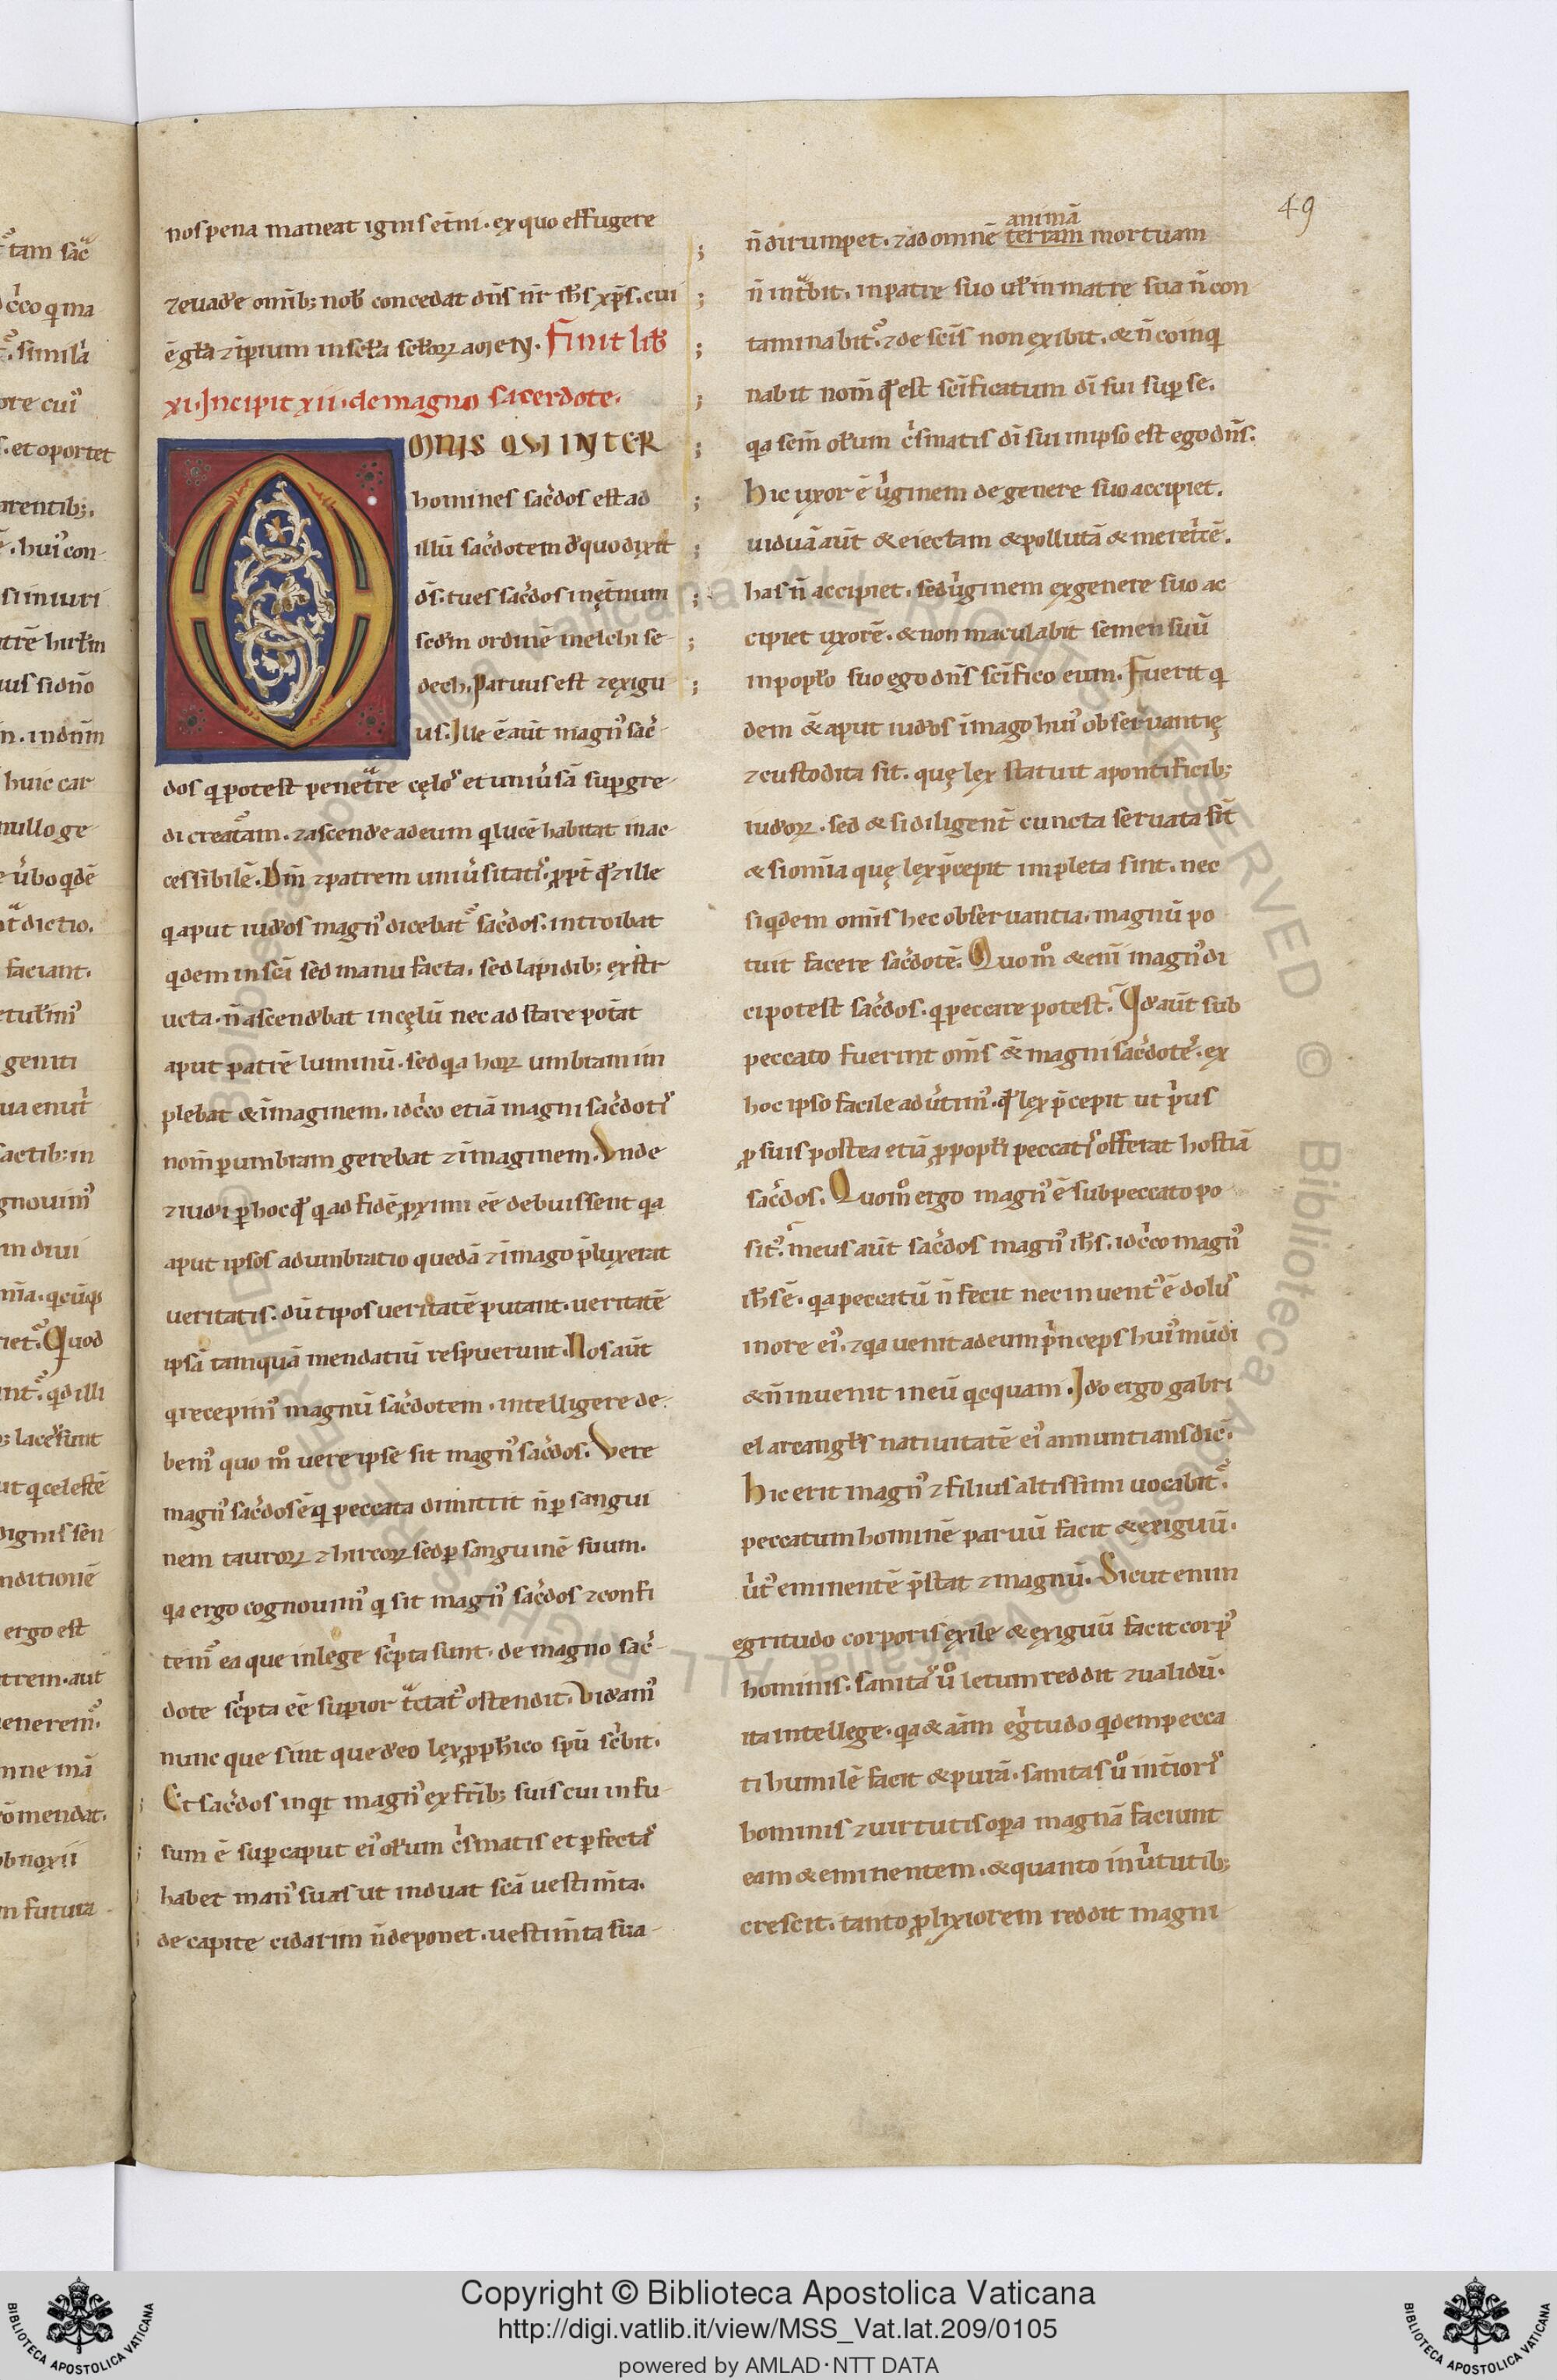 nos pena maneat ignis et̄ni. ex quo effugere
⁊ euad'e om̄ib; nob̄ concedat dn̄s nr̄ ih̄s xp̄s. cui
ē gła ⁊ īpium in scła scłoꝝ amen. Finit lib̄
xi. Incipit xii. de magno sacerdote.
OMNIS QVI INTER
homines sac̄dos est ad
illū sac̄dotem d' quo dixit
dn̄s. tu es sac̄dos in ęt̄num
sed̄m ordinē melchise
dech. Paruus est ⁊ exigu
us. Ille ē aūt magn' sac̄
dos q potest penet̄re cęlos et uniūsā sup̱gre
di creat̄am. ⁊ ascend'e ad eum q lucē habitat inac
cessibilē. Dm̄ ⁊ patrem uniūsitatis. ꝓpt̄ qd ⁊ ille
q aput iud'os magn' dicebat' sac̄dos. introibat
qdem in scā sed manu facta. sed lapidib; exstr
ucta. n̄ ascend'bat in cęlū nec adstare pot̄at
aput patrē luminū. sed qa hoꝝ umbram im
plebat & īmaginem. idc̄co etiā magni sac̄dotis
nom̄ p̱ umbram gerebat ⁊ īmaginem. Vnde
⁊ iud'i p̱ hoc qd qad fidē ꝓximi eē debuissent qa
aput ipsos adumbratio quedā ⁊ īmago p̄luxerat
veritatis. dū tipos veritatē putant. veritatē
ipsā tamquā mendatiū respuerunt. Nos aūt
q recepim' magnū sac̄dotem. intelligere de
bem' quo m° uere ipse sit magn' sac̄dos. Vere
magn' sac̄dos ē q peccata dimittit n̄ p̱ sangui
nem tauroꝝ ⁊ hircoꝝ sed p̱ sanguinē suum.
qa ergo cognouim' q sit magn' sac̄dos ⁊ confi
tem' ea que in lege sc̄pta sunt. de magno sac̄
dote sc̄pta eē sup̱ior t̄ctat' ostendit. Vid'am'
nunc que sint que d' eo lex ꝓph̄ico sp̄u sc̄bit.
Et sac̄dos inqt magn' ex fr̄ib; suis cui infu
sum ē sup̱ caput ei' oł'um c̄smatis et p̱fectas
habet man' suas ut induat scā uestim̄ta.
de capite cidarim n̄ deponet. uestim̄ta sua
49
animā
n̄ dirumpet. ⁊ ad omnē terram mortuam
n̄ int̄bit. in patre suo uł in matre sua n̄ con
taminabit'. ⁊ de scīs non exibit. & n̄ coinq
nabit nom̄ qd est scīficatum dī sui sup̱ se.
qa scm̄ oł'um c̄smatis dī sui in ipso est ego dn̄s.
Hic uxorē ūginem de genere suo accipiet.
uiduā aūt & eiectam & pollutā & meret̄cē.
has n̄ accipiet. sed ūginem ex genere suo ac
cipiet uxorē. & non maculabit semen suū
in popło suo ego dn̄s scīfico eum. Fuerit q
dem & aput iud'os īmago hui' obseruantię
⁊ custodita sit. quę lex statuit a pontificib;
iud'oꝝ. sed & si diligent̄ cuncta seruata sīt
& si om̄ia quę lex p̄cepit impleta sint. nec
siqdem om̄is hec obseruantia. magnū po
tuit facere sac̄dotē. Quom° & enī magn' di
ci potest sac̄dos. q peccare potest. Qd aūt sub
peccato fuerint om̄s & magni sac̄dotes. ex
hoc ipso facile adūtim'. qd lex p̄cepit ut p̄us
ꝓ suis postea etiā ꝓ popłi peccatis offerat hostiā
sac̄dos. Quom° ergo magn' ē sub peccato po
sit'. meus aūt sac̄dos magn' ih̄s. idc̄co magn'
ih̄s ē. qa peccatū n̄ fecit nec inuent' ē dolus
in ore ei'. ⁊ qa uenit ad eum p̄nceps hui' mūdi
& n̄ inuenit in eū qcquam. Id'o ergo gabri
el arcangłs natiuitatē ei' annuntians dic̄.
Hic erit magn' ⁊ filius altissimi uocabit'.
peccatum hominē paruū facit & exiguū.
ūt' eminentē p̄stat ⁊ magnū. Sicut enim
egritudo corporis exile & exiguū facit corp'
hominis. sanitas ū° letum reddit ⁊ ualidū.
ita intellege. qa & aīam eḡtudo qdem pecca
ti humilē facit & puīā. sanitas ū° int̄ioris
hominis ⁊ uirtutis op̱a magnā faciunt
eam & eminentem. & quanto in ūtutib;
crescit. tanto ꝓlixiorem reddit magni
Copyright © Biblioteca Apostolica Vaticana
http://digi.vatlib.it/view/MSS_Vat.lat.209/0105
powered by AMLAD·NTT DATA